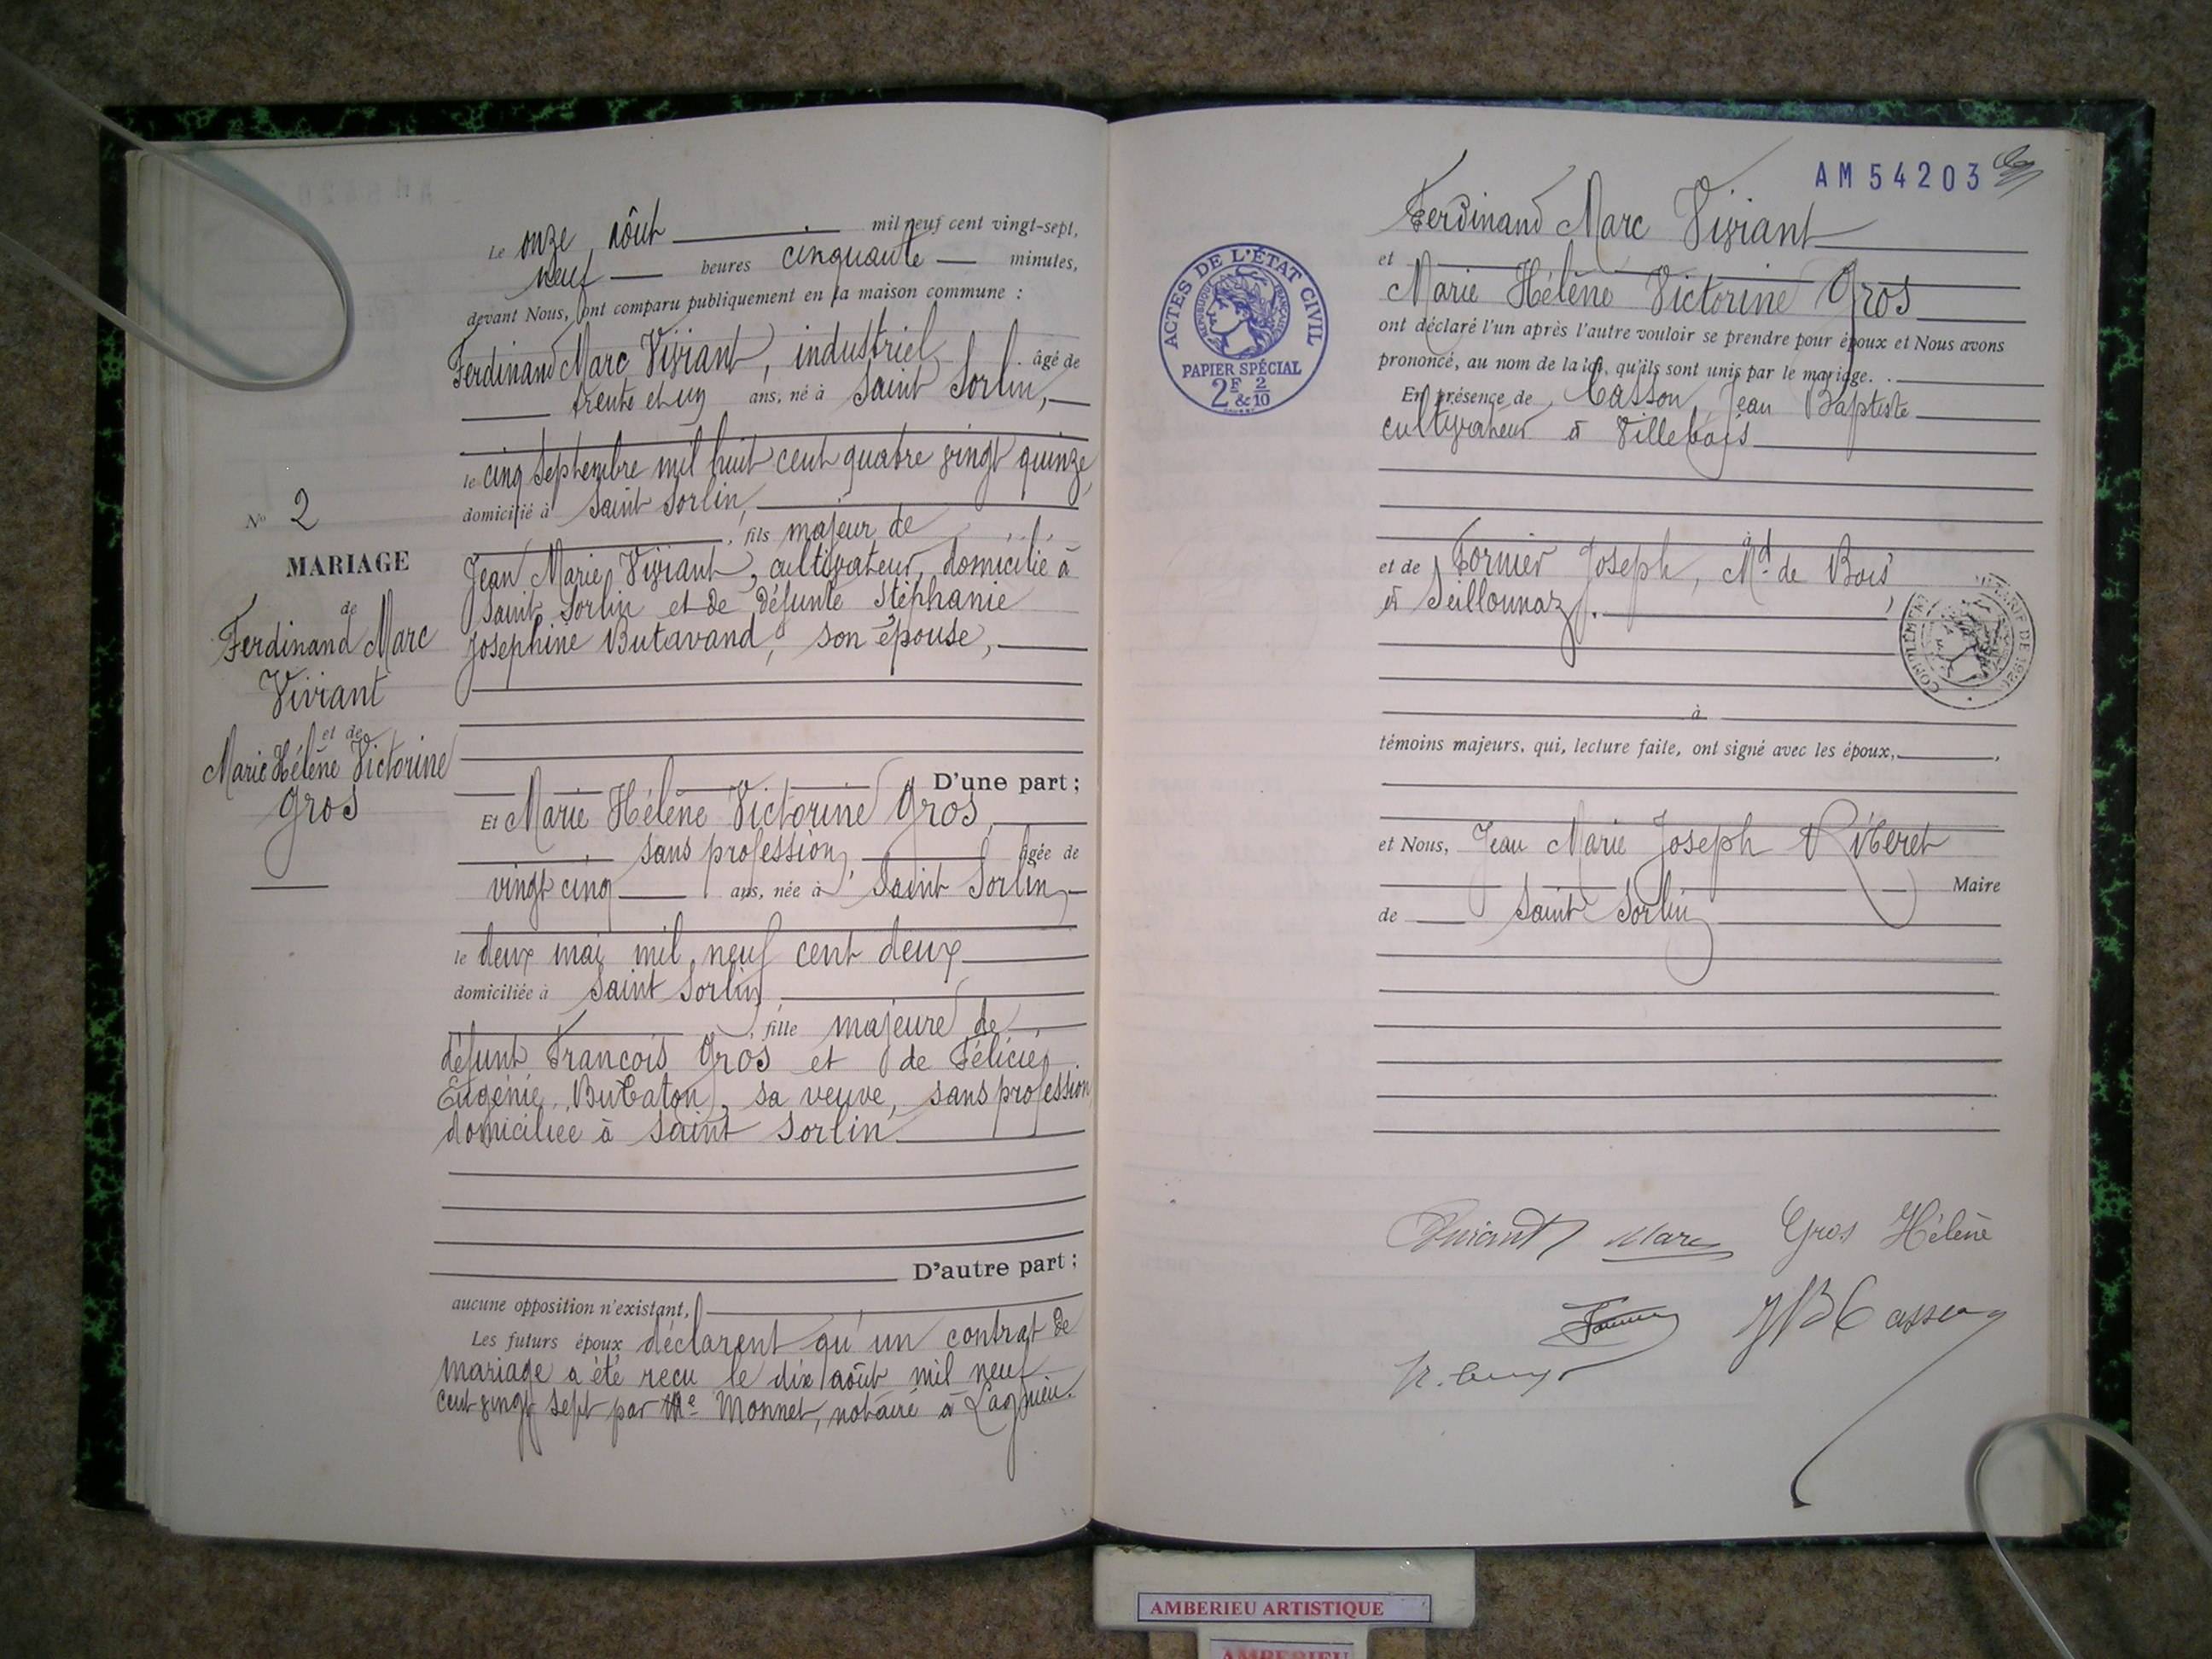 Le onze août mil neuf cent vingt-sept,
neuf heures cinquante minutes,
devant Nous, ont comparu publiquement en la maison commune :
Ferdinand Marc Viviant, industriel, âgé de
trente et un ans, né à Saint Sorlin,
le cinq septembre mil huit cent quatre vingt quinze,
domicilié à Saint Sorlin,
, fils majeur de
Jean Marie Viviant, cultivateur, domicilié à
Saint Sorlin et de défunte Stéphanie
Josephine Butavand, son épouse,
D'une part ;
Et Marie Hélène Victorine Gros,
sans profession, âgée de
vingt cinq ans, née à Saint Sorlin,
le deux mai mil neuf cent deux
domiciliée à Saint Sorlin,
, fille majeure de
défunt François Gros et de Félicie
Eugénie, sa veuve, sans profession
domiciliée à Saint Sorlin
D'autre part ;
aucune opposition n'existant,
Les futurs époux déclarent qu'un contrat de
mariage a été reçu le dix août mil neuf
cent vingt sept par Me Monnet, notaire à Lagnieu.
N° 2
MARIAGE
de
Ferdinand Marc
Viviant
et de
Marie Hélène Victorine
Gros
AM 54203
Ferdinand Marc Viviant
et
Marie Hélène Victorine Gros
ont déclaré l'un après l'autre vouloir se prendre pour époux et Nous avons
prononcé, au nom de la loi, qu'ils sont unis par le mariage.
En présence de Casson, Jean Baptiste
cultivateur à Villebois
et de Fornier Joseph, Md de Bois,
à Seillonnaz.
à
témoins majeurs, qui, lecture faite, ont signé avec les époux,
et Nous, Jean Marie Joseph Riberet
Maire
de Saint Sorlin
ACTES DE L'ÉTAT CIVIL
RÉPUBLIQUE FRANÇAISE
PAPIER SPÉCIAL
2F & 2/10
Viviant Marc Gros Hélène
JB Casson
AMBERIEU ARTISTIQUE
AMBERIEU